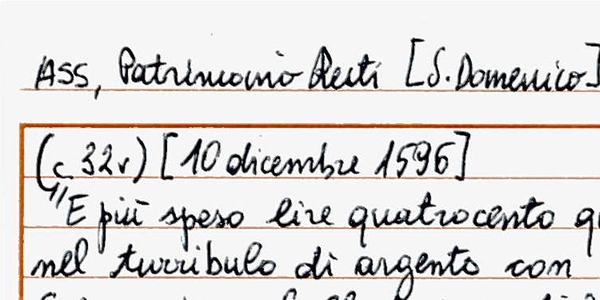 ASS, Patrimonio Resti [S. Domenico]
(c 32v) [10 dicembre 1596]
"E più speso lire quatrocento
nel turribulo di argento con